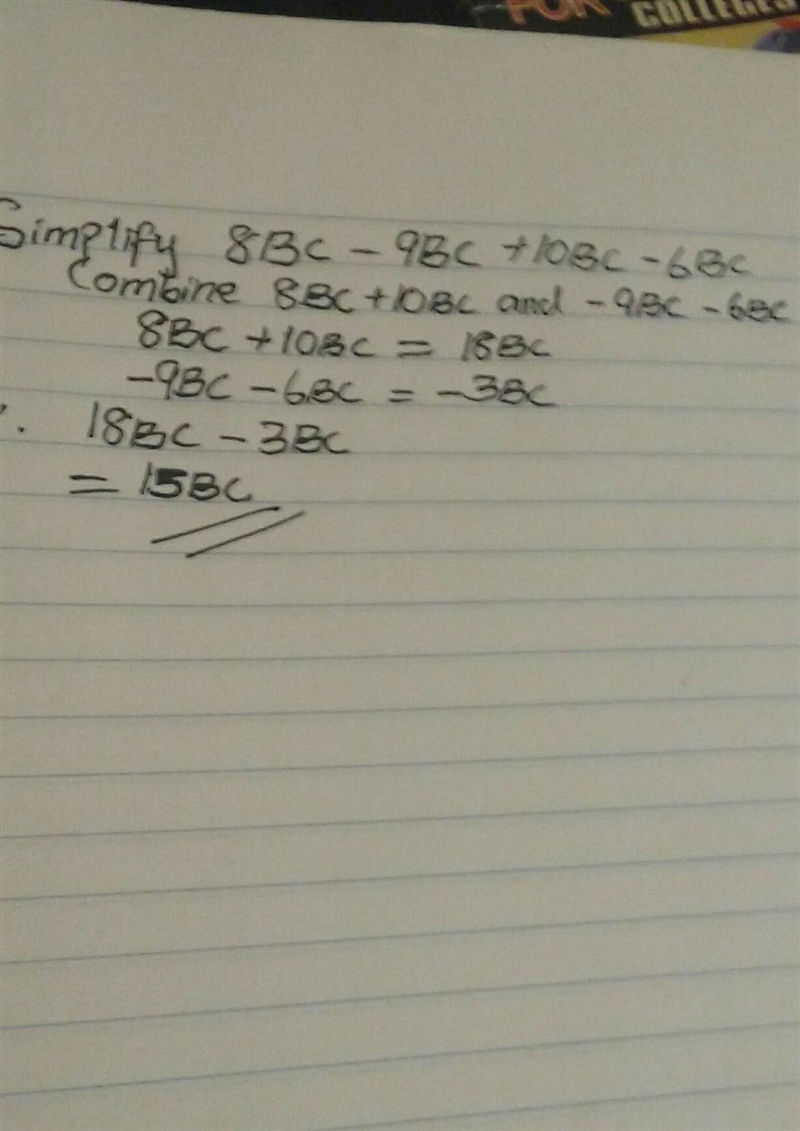 FOR
COLLEGES
Simplify 8BC - 9BC + 10BC - 6BC
Combine 8BC + 10BC and - 9BC - 6BC
8BC + 10BC = 18BC
-9BC - 6BC = -3BC
∴ 18BC - 3BC
= 15BC